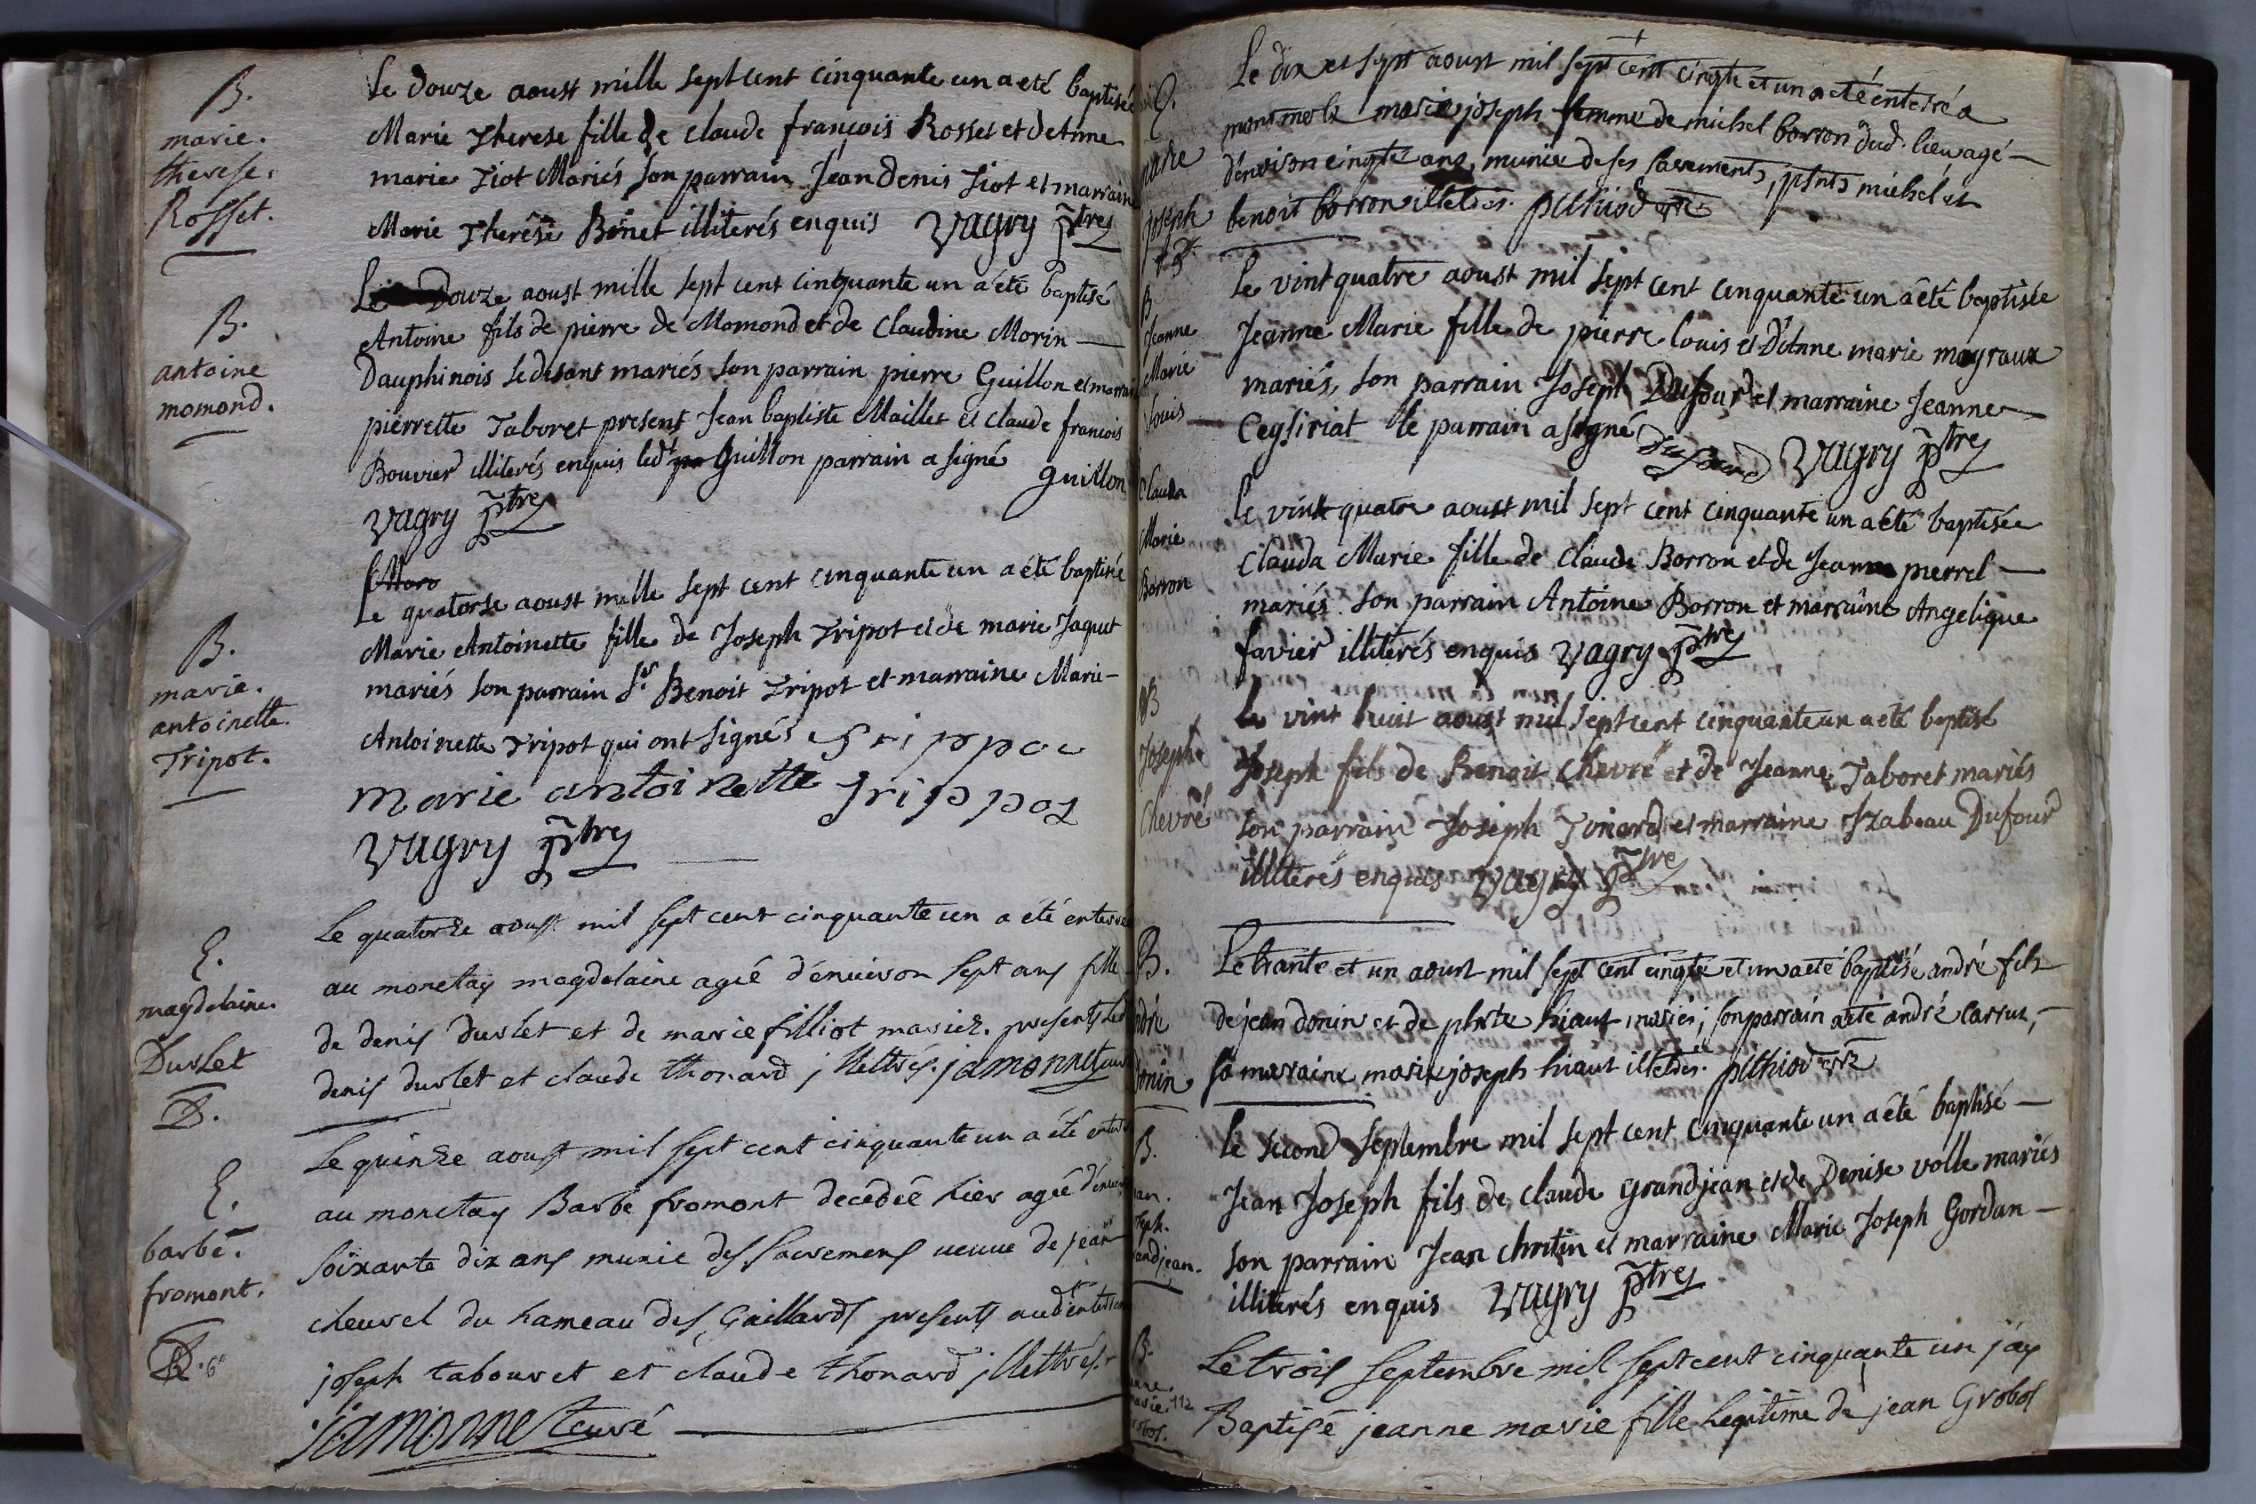 B.
marie.
therese.
Rosset.
Le douze aoust mille sept cent cinquante un a eté baptisée
Marie Therese fille de claude françois Rosset et de Anne
marie Tiot Mariés son parrain Jean denis Tiot et marraine
Marie Therêse Binet illiterés enquis Vagry ptre
B.
antoine
momond.
Le douze aoust mille sept cent cinquante un a été baptisé
Antoine fils de pierre de Momond et de Claudine Morin
Dauphinois se disant mariés son parrain pierre Guillon et marrai
pierrette Taboret present Jean baptiste Maillet et claude francois
Bouvier illiterés enquis ledt Guillon parrain a signé guillon
Vagry ptre
B.
marie.
antoinette.
Tripot.
Le quatorse aoust mille sept cent cinquante un a été baptisée
Marie Antoinette fille de Joseph Tripot et de marie Jaquet
mariés son parrain Sr Benoit Tripot et marraine Marie
Antoinette Tripot qui ont signés Trippoc
marie antoinette trippot
Vagry ptre
E.
magdelaine.
Durlet
Le quatorze aoust mil sept cent cinquante un a été enterré
au monetay magdelaine ageé d'enuiron sept ans fille
de denis durlet et de marie filliot mariez. presents led
denis durlet et claude thonard jllettrés. jamonnet curé
E.
barbe.
fromont.
Le quinze aoust mil sept cent cinquante un a été enterré
au monetay Barbe fromont decédée hier ageé d'enuir
soixante dix ans munie des sacremens ueuue de jean
cheurel du hameau des Gaillards presents audt enterrem
joseph tabouret et claude thonard jllettrés.
jamonnet curé
E.
marie
joseph
Le dix et sept aoust mil sept cent cinqte et un a eté enterré a
montmerle marie joseph femme de michel borron dud. lieu agé
d'environ cinqte ans, munie de ses sacrements, psnts michel et
benoit borron illetrés. puthiod
B
Jeanne
Marie
Louis
Le vint quatre aoust mil sept cent cinquante un a été baptisée
Jeanne Marie fille de pierre louis et D'Anne marie mograux
mariés, son parrain Joseph Dufour et marraine Jeanne
Cegsiriat le parrain a signé Dufour Vagry ptre
Clauda
Marie
Borron
Le vint quatre aoust mil sept cent cinquante un a été baptisée
Clauda Marie fille de Claude Borron et de Jeanne pierrel
mariés. son parrain Antoine Borron et marraine Angelique
favier illiterés enquis Vagry ptre
B
Joseph
Chevré
Le vint huit aoust mil sept cent cinquante un a été baptisé
Joseph fils de Benoit Chevré et de Jeanne Taboret mariés
son parrain Joseph Tonard et marraine Izabeau Dufour
illiterés enquis Vagry ptre
B.
andré
donin
Le trante et un aoust mil sept cent cinqte et un a eté baptisé andré fils
de jean donin et de phrte hiaut mariés; son parrain a eté andré carrut,
sa maraine marie joseph hiaut illetrés. puthiod
B.
ean.
oseph.
randjean.
Le second septembre mil sept cent cinquante un a été baptisé
Jean Joseph fils de claude grandjean et de Denise volle mariés
son parrain Jean chretin et marraine Marie Joseph Gordan
illiterés enquis Vagry ptre
B.
anne.
marie.
robos.
112
Le trois septembre mil sept cent cinquante un j'ay
Baptisé jeanne marie fille legitime de jean Grobos